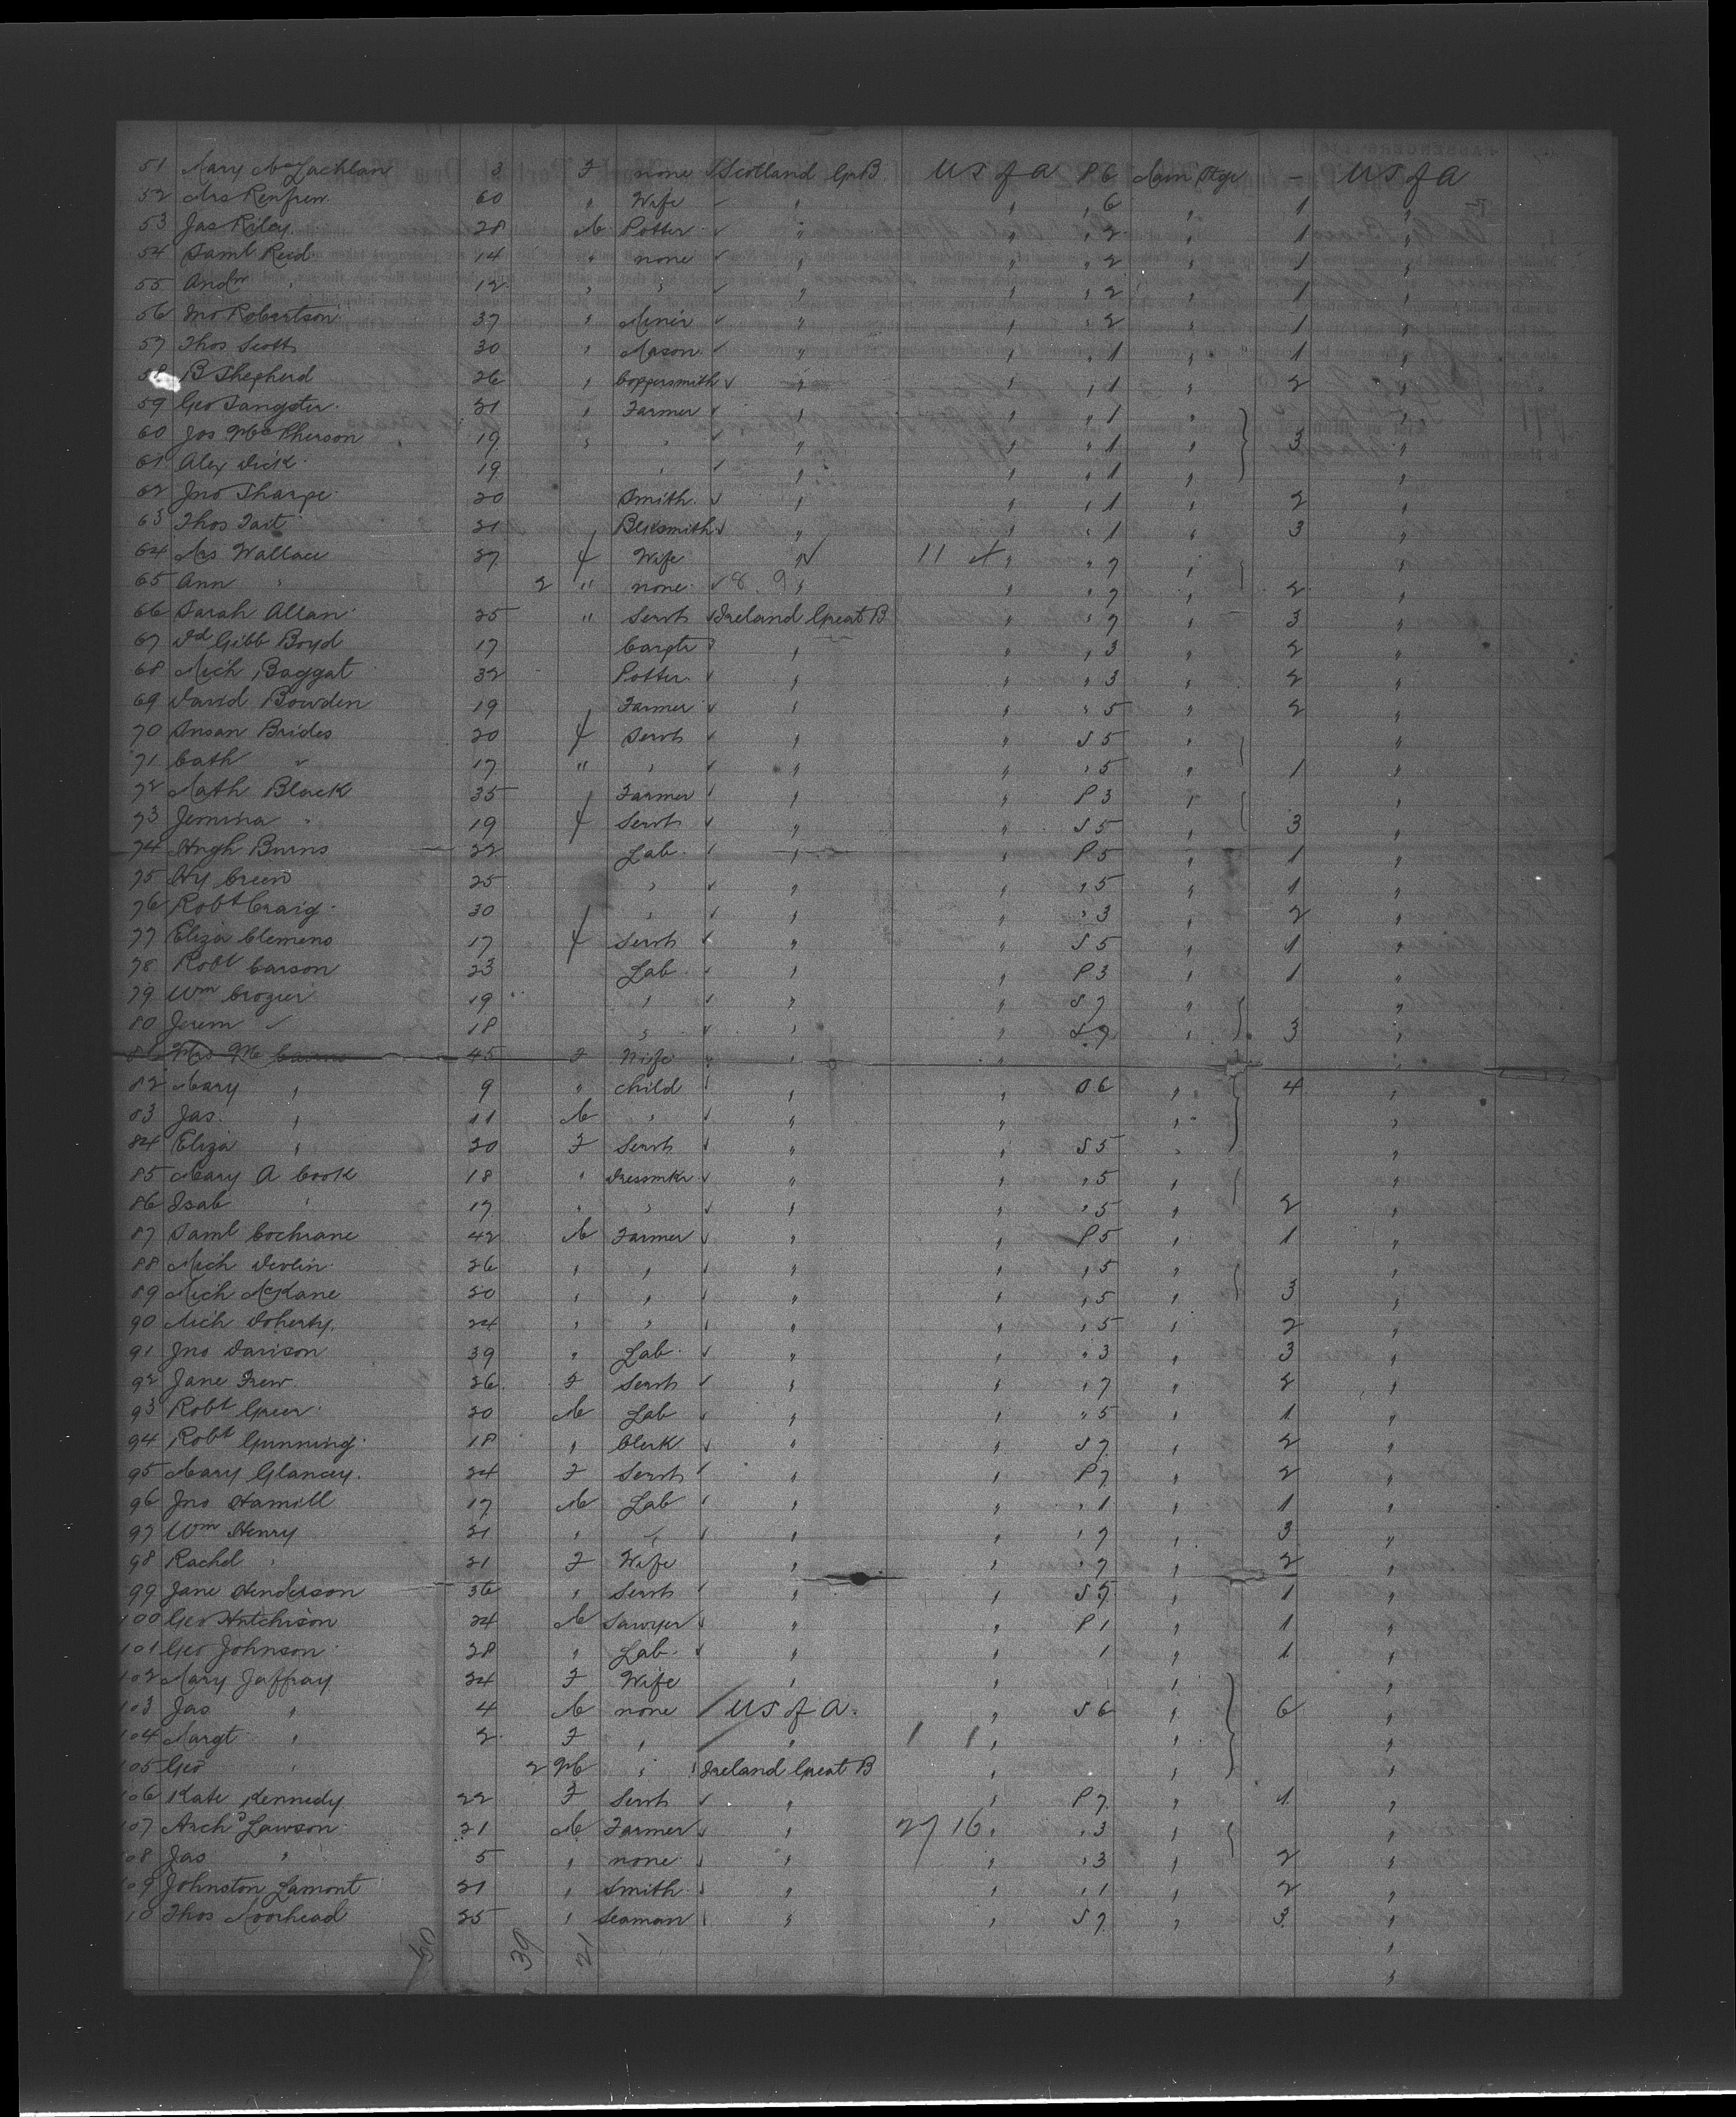 51 Mary McLachlan 3 F none Scotland Gr B. U S of A P 6 Main Stge - U S of A
52 Mrs Renfrew 60 " Wife " " " 6 " 1 "
53 Jas Riley 28 M Potter " " " 2 " 1 "
54 Saml Reid 14 " none " " " 2 " 1 "
55 Andw " 12 " " " " " 2 " 1 "
56 Jno Robertson 37 " Miner " " " 2 " 1 "
57 Thos Scott 30 " Mason " " " 1 " 1 "
58 B Shepherd 26 " Coppersmith " " " 1 " 2 "
59 Geo Sangster 21 " Farmer " " " 1 " "
60 Jas McPherson 19 " " " " " 1 " 3 "
61 Alex Dick 19 " " " " 1 " "
62 Jno Tharpe 20 Smith " " " 1 " 2 "
63 Thos Tait 21 Blksmith " " " 1 " 3 "
64 Mrs Wallace 27 F Wife " 11 " " 7 " "
65 Ann " 2 " none 8 9 " " " 7 " 2 "
66 Sarah Allan 25 " Servt Ireland Great B " " 7 " 3 "
67 Dd Gibb Boyd 17 Carptr " " " 3 " 2 "
68 Mich Baggat 32 Potter " " " 3 " 2 "
69 David Bowden 19 Farmer " " " 5 " 2 "
70 Susan Brides 20 F Servt " " S 5 " "
71 Cath " 17 " " " " " 5 " 1 "
72 Math Black 35 Farmer " " P 3 " "
73 Jemina " 19 F Servt " " S 5 " 3 "
74 Hugh Burns 22 Lab " " P 5 " 1 "
75 Hy Green 25 " " " " 5 " 1 "
76 Robt Craig 30 " " " " 3 " 2 "
77 Eliza Clemens 17 F Servt " " S 5 " 1 "
78 Robt Carson 23 Lab " " P 3 " 1 "
79 Wm Crozier 19 " " " S 7 " "
80 Jerem " 18 " " " S 7 " 3 "
81 Mrs Mc 45 F Wife " " "
82 Mary " 9 " child " " 6 " 4 "
83 Jas " 11 M " " " " "
84 Eliza " 20 F Servt " " S 5 " "
85 Mary A Cook 18 " Dressmkr " " " 5 " "
86 Isab " 17 " " " " " 5 " 2 "
87 Saml Cochrane 42 M Farmer " " P 5 " 1 "
88 Mich Devlin 26 " " " " " 5 " "
89 Mich McKane 20 " " " " " 5 " 3 "
90 Mich Doherty 24 " " " " " 5 " 2 "
91 Jno Davison 39 " Lab " " " 3 " 3 "
92 Jane Frew 26 F Servt " " " 7 " 2 "
93 Robt Greer 20 M Lab " " " 5 " 1 "
94 Robt Gunning 18 " Clerk " " S 7 " 2 "
95 Mary Glancy 24 F Servt " " P 7 " 2 "
96 Jno Hamill 17 M Lab " " " 1 " 1 "
97 Wm Henry 21 " " " " " 7 " 3 "
98 Rachel " 21 F Wife " " " 7 " 2 "
99 Jane Henderson 36 " Servt " " S 7 " 1 "
100 Geo Hutchison 24 M Sawyer " " P 1 " 1 "
101 Geo Johnson 28 " Lab " " 1 " 1 "
102 Mary Jaffray 24 F Wife " " " "
103 Jas " 4 M none U S of A " S 6 " 6 "
104 Margt " 2 F " " 1 1 " " "
105 Geo " 2 M " Ireland Great B " " "
106 Kate Kennedy 22 F Servt " " P 7 " 1 "
107 Archd Lawson 21 M Farmer " 27 16 " " 3 " "
108 Jas " 5 " none " " " 3 " 2 "
109 Johnston Lamont 21 " Smith " " " 1 " 2 "
110 Thos Moorhead 25 " Seaman " " S 7 " 3 "
39 21 "
"